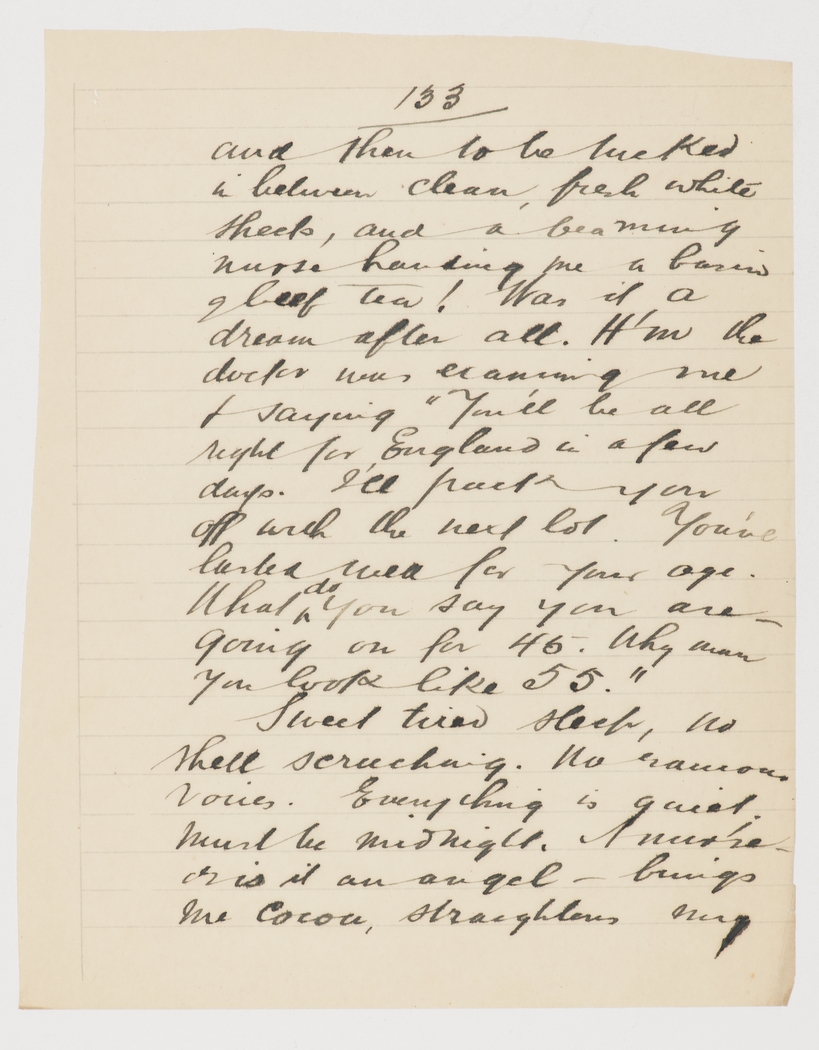 133
and then to be tucked
in between clean, fresh white
sheets, and a beaming
nurse handing me a basin
of beef tea! Was it a
dream after all. H'm the
doctor was examining me
& saying "You'll be all
right for England in a few
days. I'll pack you
off with the next lot. You've
lasted well for your age.
What do you say you are—
going on for 45. Why man
you look like 55."
Sweet tired sleep, no
shell screeching. No raucous
voices. Everything is quiet.
Must be midnight. A nurse—
or is it an angel — brings
me cocoa, straightens my